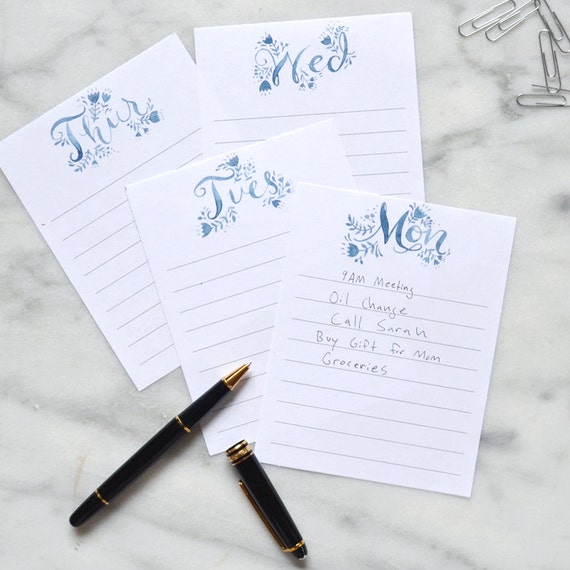 Wed
Thur
Tues
Mon
9AM Meeting
Oil Change
Call Sarah
Buy Gift for Mom
Groceries